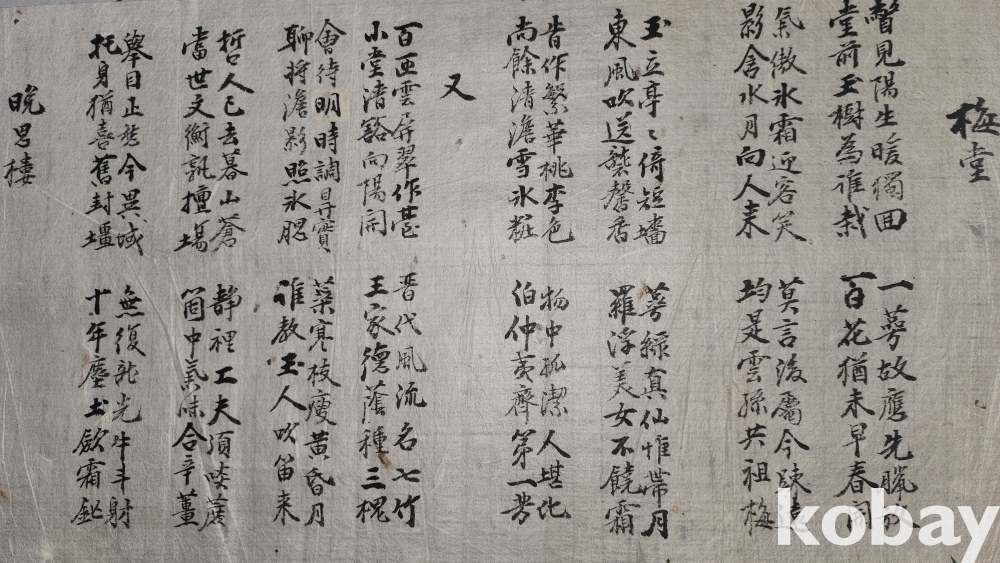 梅堂
瞥見陽生暖獨回
堂前玉樹為誰栽
一萼故應先臘放
百花猶未早春開
氣傲氷霜迎客笑
影含水月向人来
莫言後屬今踈遠
均是雲孫共祖梅
玉立亭〻倚短墻
東風吹送襲馨香
萼綠真仙惟帶月
羅浮美女不饒霜
昔作繁華桃李色
尚餘清澹雪氷粧
物中孤潔人堪比
伯仲夷齊第一芳
又
百匝雲屏翠作臺
小堂清豁向陽開
晋代風流名七竹
王家德蔭種三槐
會待明時調鼎實
聊将澹影照氷腮
葉寒枝瘦黄昏月
誰教玉人吹笛来
哲人已去暮山蒼
當世文衡孰擅場
静裡工夫須啖蔗
箇中氣味合辛薑
擧目正愁今異域
托身猶喜舊封壃
無復龍光牛斗射
十年塵土斂霜鋩
晩思樓
kobay